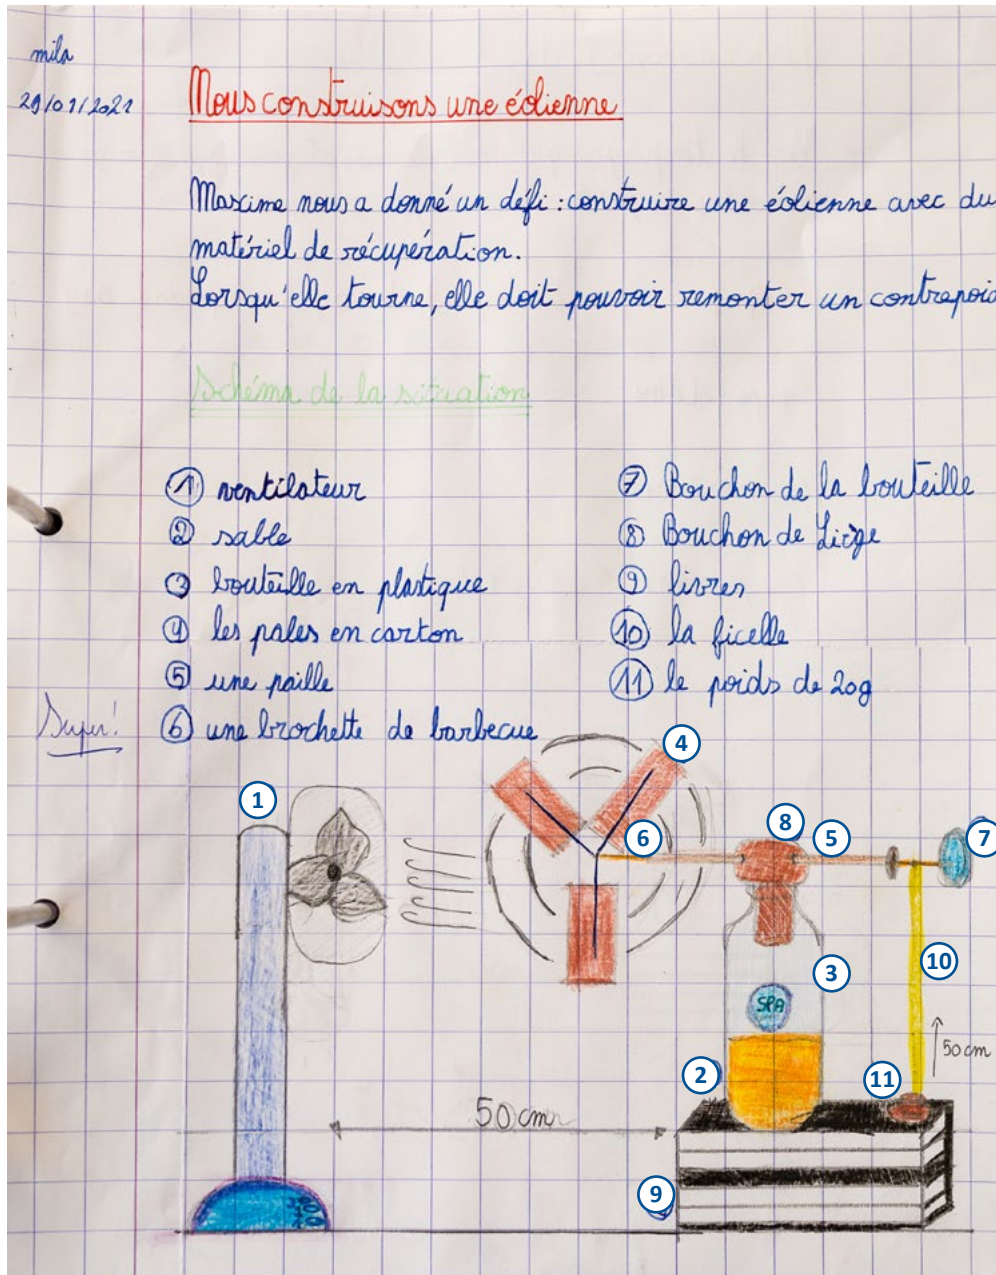 mila
29/01/2021
Nous construisons une éolienne
Maxime nous a donné un défi : construire une éolienne avec du
matériel de récupération.
Lorsqu'elle tourne, elle doit pouvoir remonter un contrepoid
Schéma de la situation
1 ventilateur
2 sable
3 bouteille en plastique
4 les pales en carton
5 une paille
6 une brochette de barbecue
7 Bouchon de la bouteille
8 Bouchon de Liège
9 livres
10 la ficelle
11 le poids de 20g
Super!
4
1
8
5
7
6
3
10
SPA
50 cm
2
11
50 cm
9